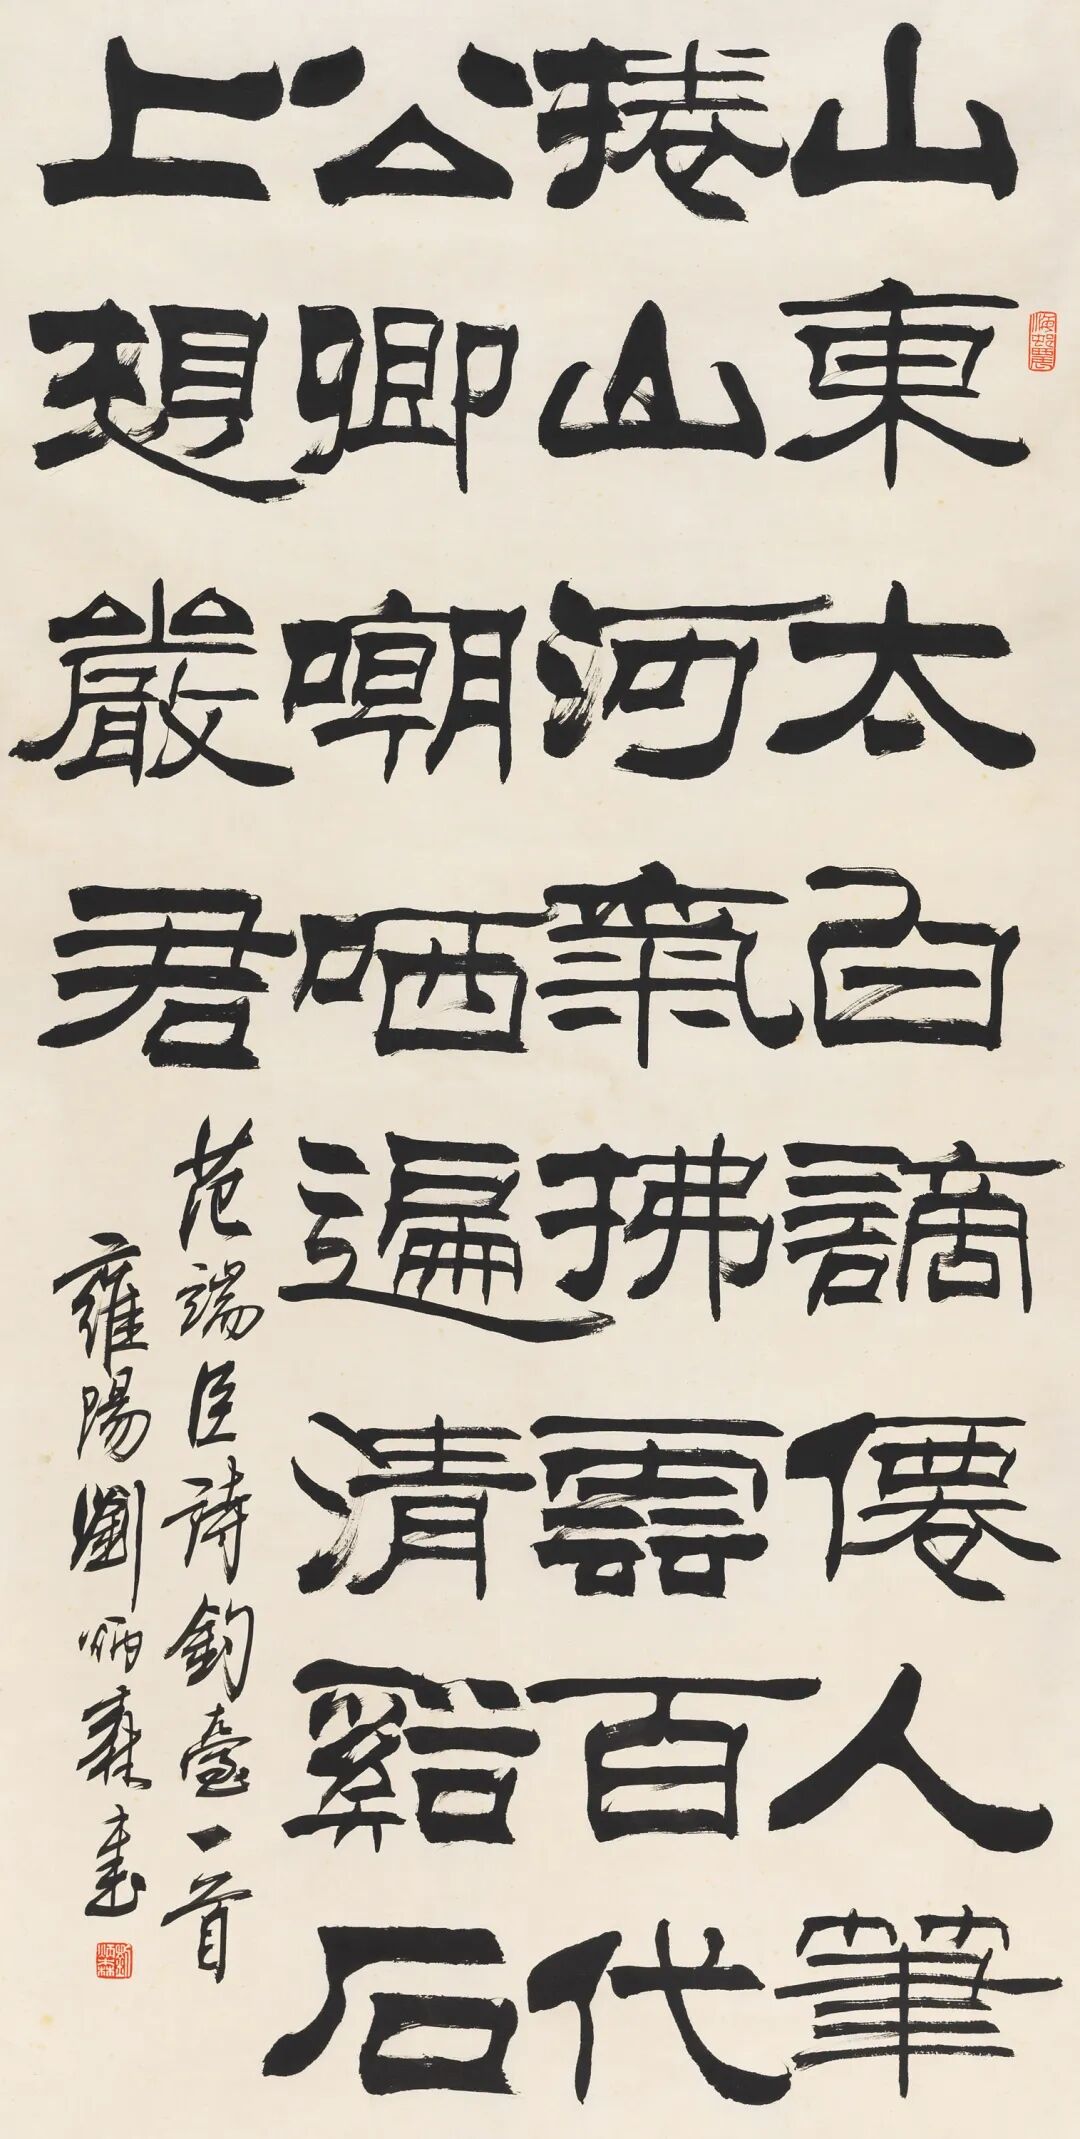 山東太白謫僊人筆
捲山河氣拂雲百代
公卿嘲哂遍清谿石
上想嚴君
范端臣詩釣臺一首
雍陽劉炳森書
劉炳森